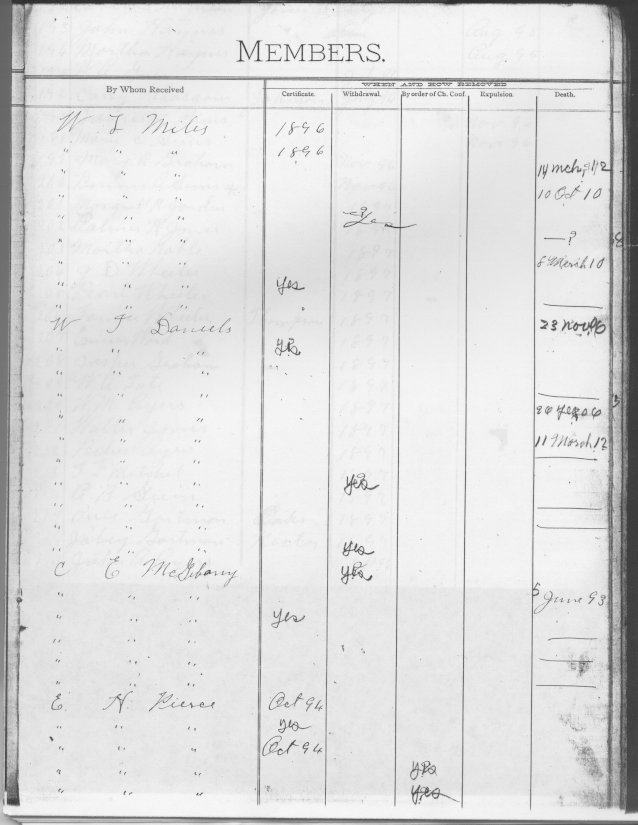 MEMBERS.
WHEN AND HOW REMOVED
By Whom Received Certificate. Withdrawal. By order of Ch. Conf. Expulsion. Death.
W L Miles 1896
" " " 1896
" " " 14 mch 1912
" " " 10 Oct 10
" " " Yes
" " " — ?
" " " 8 March 10
" " " Yes
" " "
W J Daniels 23 Nov 06
" " " Yes
" " "
" " "
" " "
" " " 11 March 12
" " "
" " " Yes
" " "
" " "
" " " Yes
C E McGibony Yes
" " " 5 June 93
" " " Yes
" " "
" " "
" " "
E. H. Pierce Oct 94
" " " Yes
" " " Oct 94
" " " Yes
" " " Yes